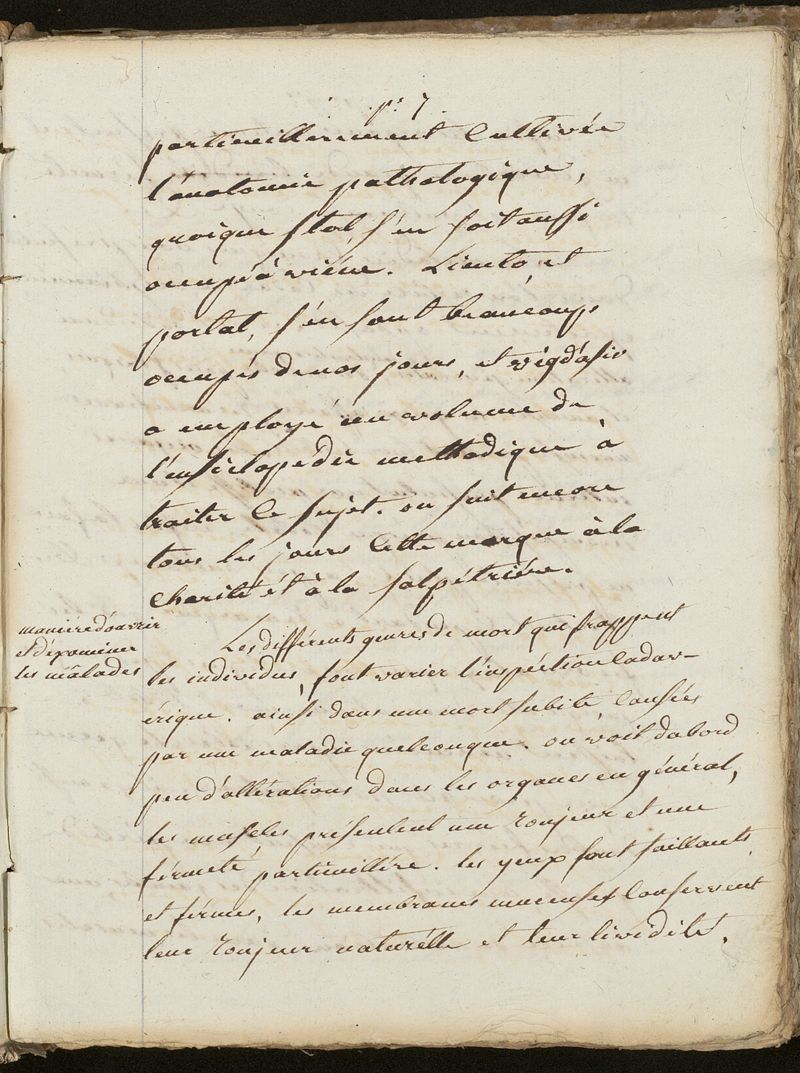 pe 7
particuillèrement Cultivée
l'anatomie pathologique,
quoique stol, s'en soit aussi
occupé à viène. Lieuto, et
portal, s'en sont beaucoups
occupés de nos jours, et viqd'asir
a employé un volume de
l'ensiclopédie méthodique à
traiter Ce sujet. on suit encore
tous les jours Cette marque à la
Charité et à la salpétrière.
manière d'ouvrir
et d'éxaminer
les mâlades
Les différents genres de mort qui frappent
les individus, font varier l'inspéction Cadav-
érique. ainsi dans une mort subite Causées
par une maladie quelconque. on voit dabord
peu d'altérations dans les organes en général,
les muscles présentent une roujeur et une
férmeté particuillère. les yeux sont saillants
et férmes, les membranes muceuses Conservent
leur roujeur naturélle et leur lividité.